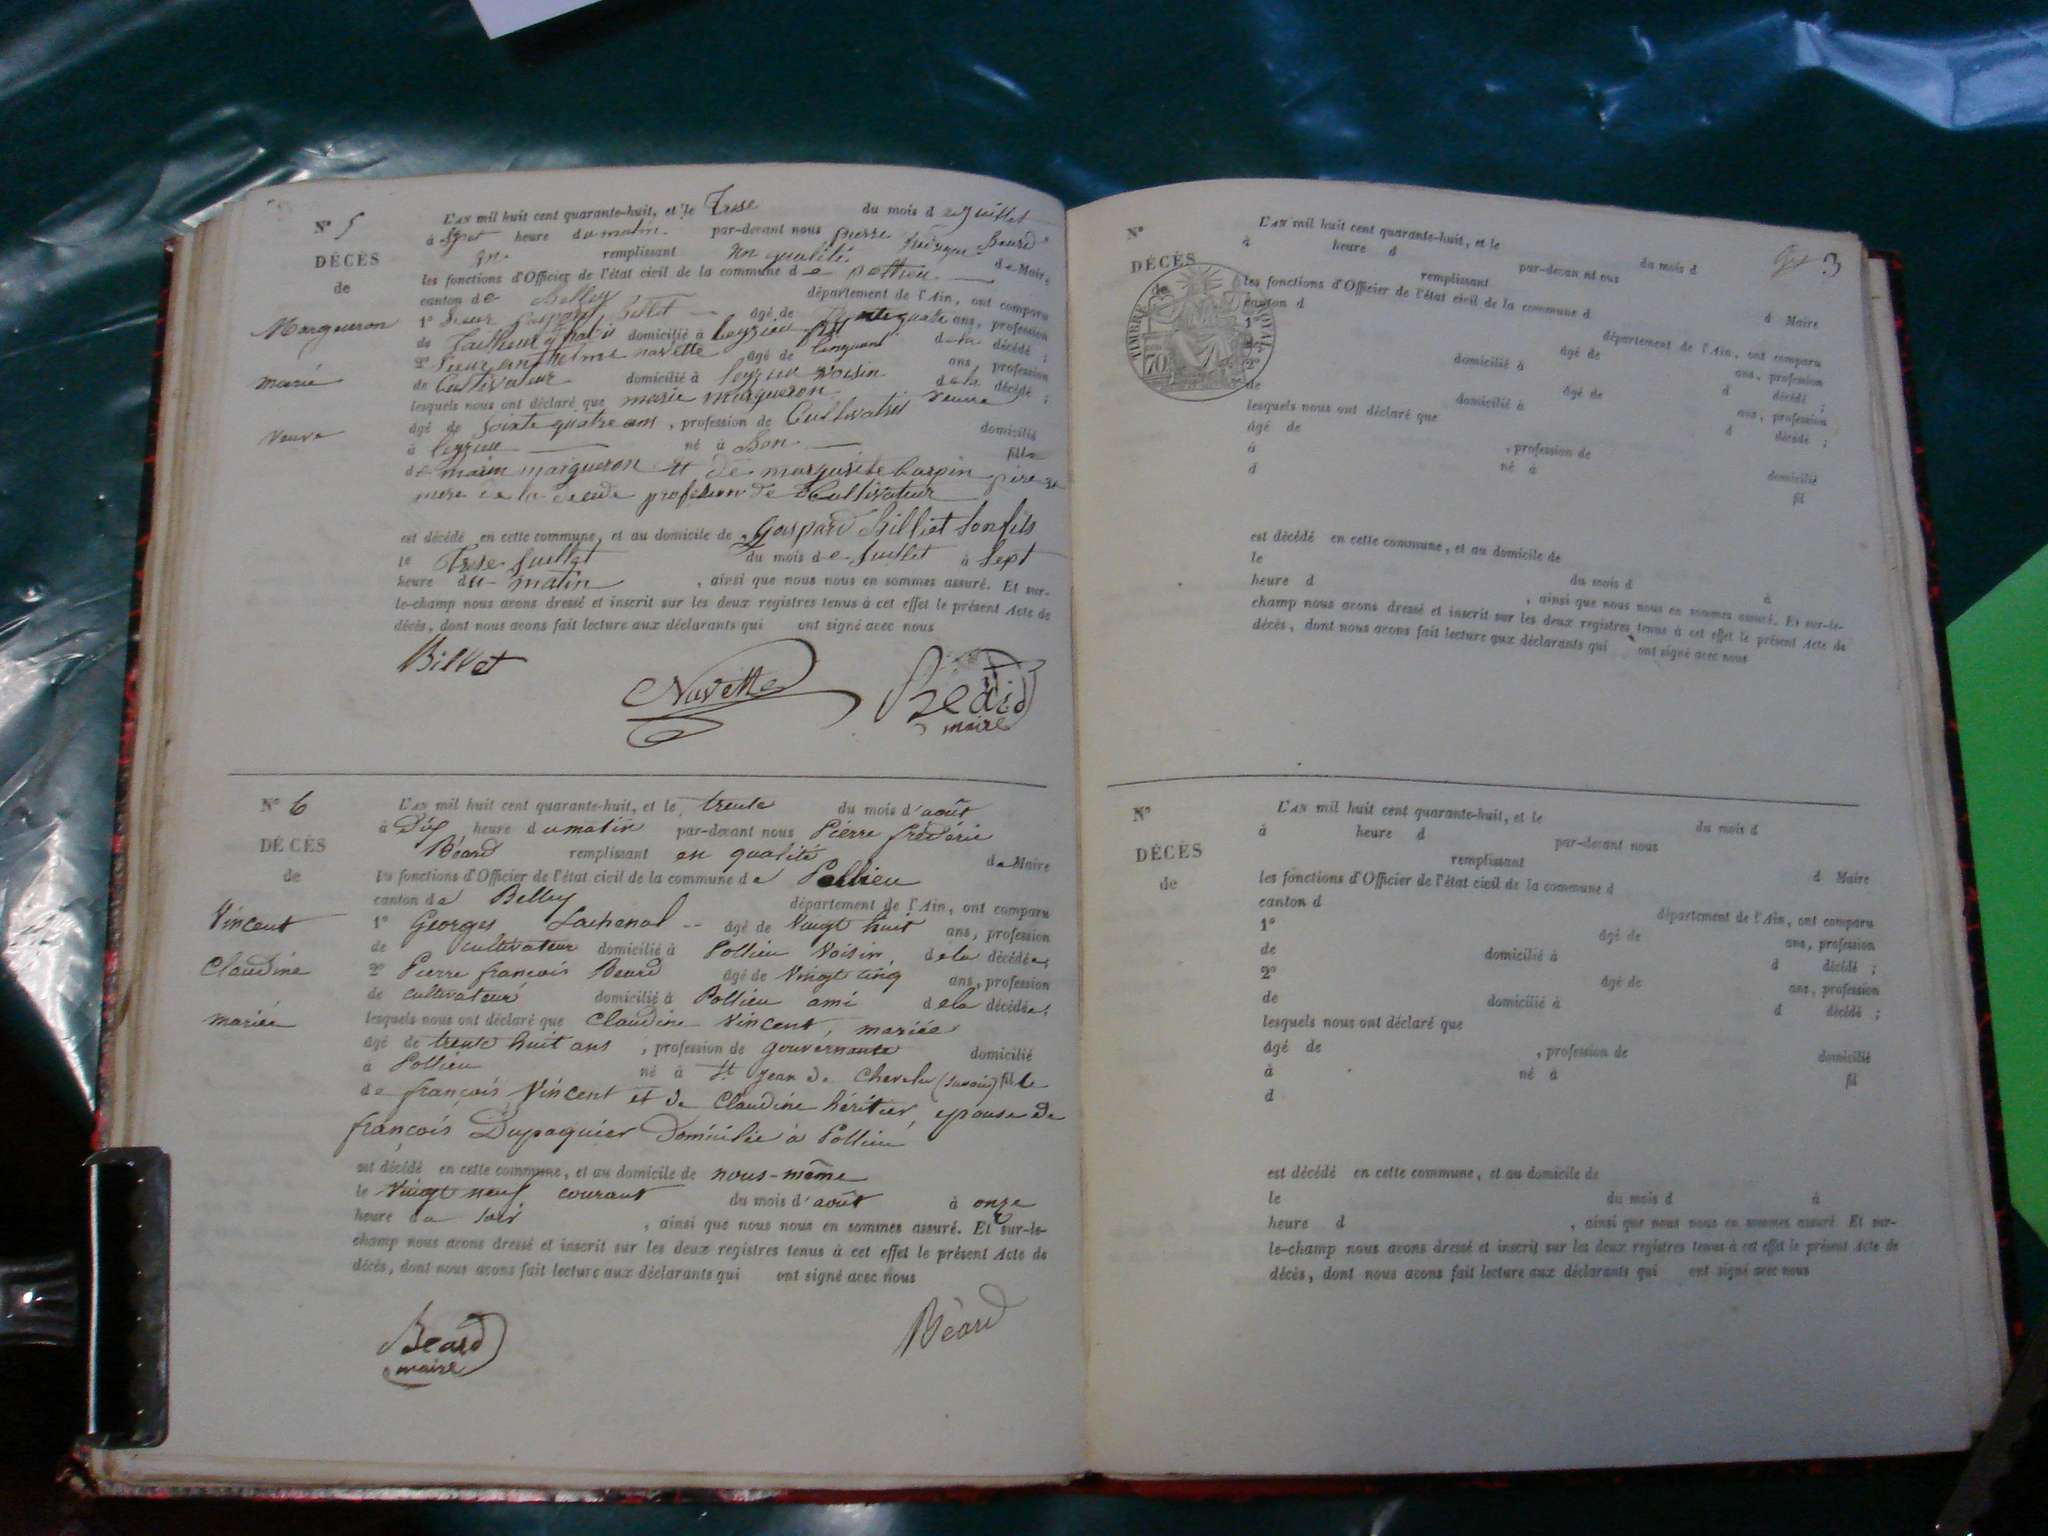 N° 5
L'AN mil huit cent quarante-huit, et le Trese du mois de Juillet
à Sept heure du matin par-devant nous pierre Beard
DÉCÈS
remplissant en qualité de Maire
les fonctions d'Officier de l'état civil de la commune de pollieu
de
canton de Belley département de l'Ain, ont comparu
Margueron
1° Sieur Gaspard Billet âgé de ans, profession
de Tailleur d'habit domicilié à leyzieu de la décédé ;
2° Sieur anthelme navette âgé de Cinquant ans, profession
marie
de Cultivateur domicilié à leyzieu voisin de la décédé ;
lesquels nous ont déclaré que marie margueron veuve
veuve
âgé de Soixte quatre ans, profession de Cultivatris domicilié
à leyzieu né à Bon fille
de marin margueron et de margurite Carpin pire et
mere de la decede profession de Cultivateur
est décédé en cette commune, et au domicile de Gaspard Billiet Son fils
le Trese Juillet du mois de Juillet à Sept
heure du matin , ainsi que nous nous en sommes assuré. Et sur-
le-champ nous avons dressé et inscrit sur les deux registres tenus à cet effet le présent Acte de
décès, dont nous avons fait lecture aux déclarants qui ont signé avec nous
Billet
Navette
Beard
maire
N° 6
L'AN mil huit cent quarante-huit, et le trente du mois d'août
à Dix heure du matin par-devant nous Pierre fréderic
DÉCÈS
Béard remplissant en qualité de Maire
de
les fonctions d'Officier de l'état civil de la commune de Pollieu
canton de Belley département de l'Ain, ont comparu
Vincent
1° Georges Lachenal -- âgé de Vingt huit ans, profession
de cultivateur domicilié à Pollieu Voisin, de la décédée;
Claudine
2° Pierre françois Beard âgé de Vingt cinq ans, profession
de cultivateur domicilié à Pollieu ami de la décédée;
mariée
lesquels nous ont déclaré que Claudine Vincent, mariée
âgé de trente huit ans , profession de gouvernante domicilié
à Pollieu né à St jean de Chevelu (Savoie) fille
de françois Vincent et de Claudine héritier, epouse de
françois Dupaquier Domiciliée à Pollieu
est décédé en cette commune, et au domicile de nous-même
le Vingt neuf courant du mois d'août à onze
heure du soir , ainsi que nous nous en sommes assuré. Et sur-le-
champ nous avons dressé et inscrit sur les deux registres tenus à cet effet le présent Acte de
décès, dont nous avons fait lecture aux déclarants qui ont signé avec nous
Beard
maire
Béard
3
N°
L'AN mil huit cent quarante-huit, et le du mois d
à heure d par-devan nt ous
DÉCÈS
remplissant d Maire
de
les fonctions d'Officier de l'état civil de la commune d
canton d département de l'Ain, ont comparu
TIMBRE ROYAL
70
1° âgé de ans, profession
de domicilié à d décédé ;
2° âgé de ans, profession
de domicilié à d décédé ;
lesquels nous ont déclaré que
âgé de , profession de domicilié
à né à fil
d
est décédé en cette commune, et au domicile de
le du mois d à
heure d , ainsi que nous nous en sommes assuré. Et sur-le-
champ nous avons dressé et inscrit sur les deux registres tenus à cet effet le présent Acte de
décès, dont nous avons fait lecture aux déclarants qui ont signé avec nous
N°
L'AN mil huit cent quarante-huit, et le du mois d
à heure d par-devant nous
DÉCÈS
remplissant d Maire
de
les fonctions d'Officier de l'état civil de la commune d
canton d département de l'Ain, ont comparu
1° âgé de ans, profession
de domicilié à d décédé ;
2° âgé de ans, profession
de domicilié à d décédé ;
lesquels nous ont déclaré que
âgé de , profession de domicilié
à né à fil
d
est décédé en cette commune, et au domicile de
le du mois d à
heure d , ainsi que nous nous en sommes assuré Et sur-
le-champ nous avons dressé et inscrit sur les deux registres tenus à cet effet le présent Acte de
décès, dont nous avons fait lecture aux déclarants qui ont signé avec nous